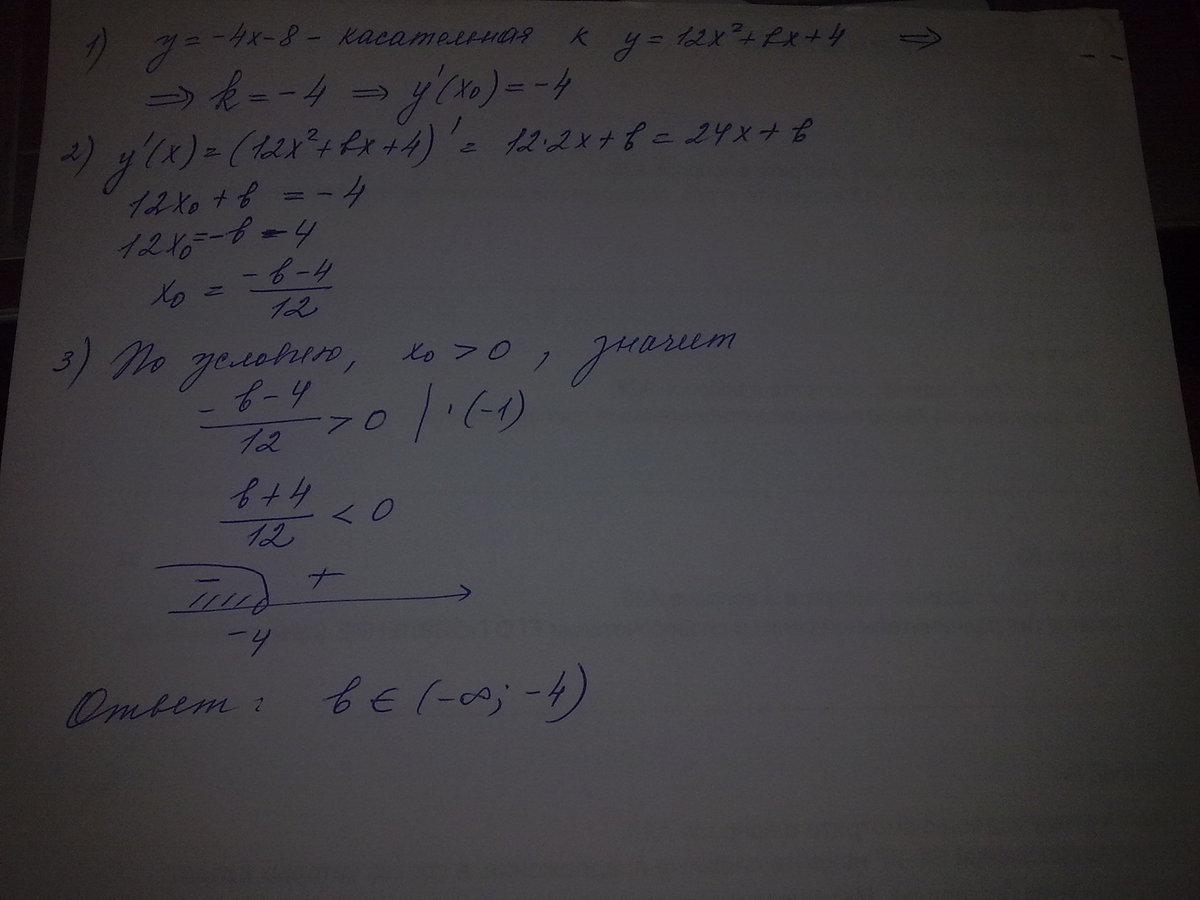 1) y = -4x-8 - касательная к y = 12x²+вx+4 ⇒
⇒ k = -4 ⇒ y'(x₀) = -4
2) y'(x) = (12x²+вx+4)' = 12·2x+в = 24x+в
12x₀ + в = -4
12x₀ = -в - 4
x₀ = (-в-4)/12
3) По условию, x₀ > 0, значит
(-в-4)/12 > 0 | ·(-1)
(в+4)/12 < 0
- +
-4
Ответ: в ∈ (-∞; -4)